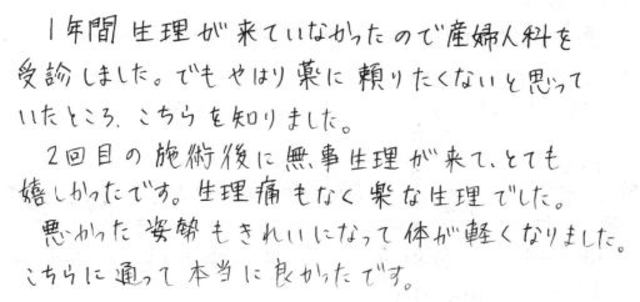 1年間生理が来ていなかったので産婦人科を
受診しました。でもやはり薬に頼りたくないと思って
いたところ、こちらを知りました。
2回目の施術後に無事生理が来て、とても
嬉しかったです。生理痛もなく楽な生理でした。
悪かった姿勢もきれいになって体が軽くなりました。
こちらに通って本当に良かったです。